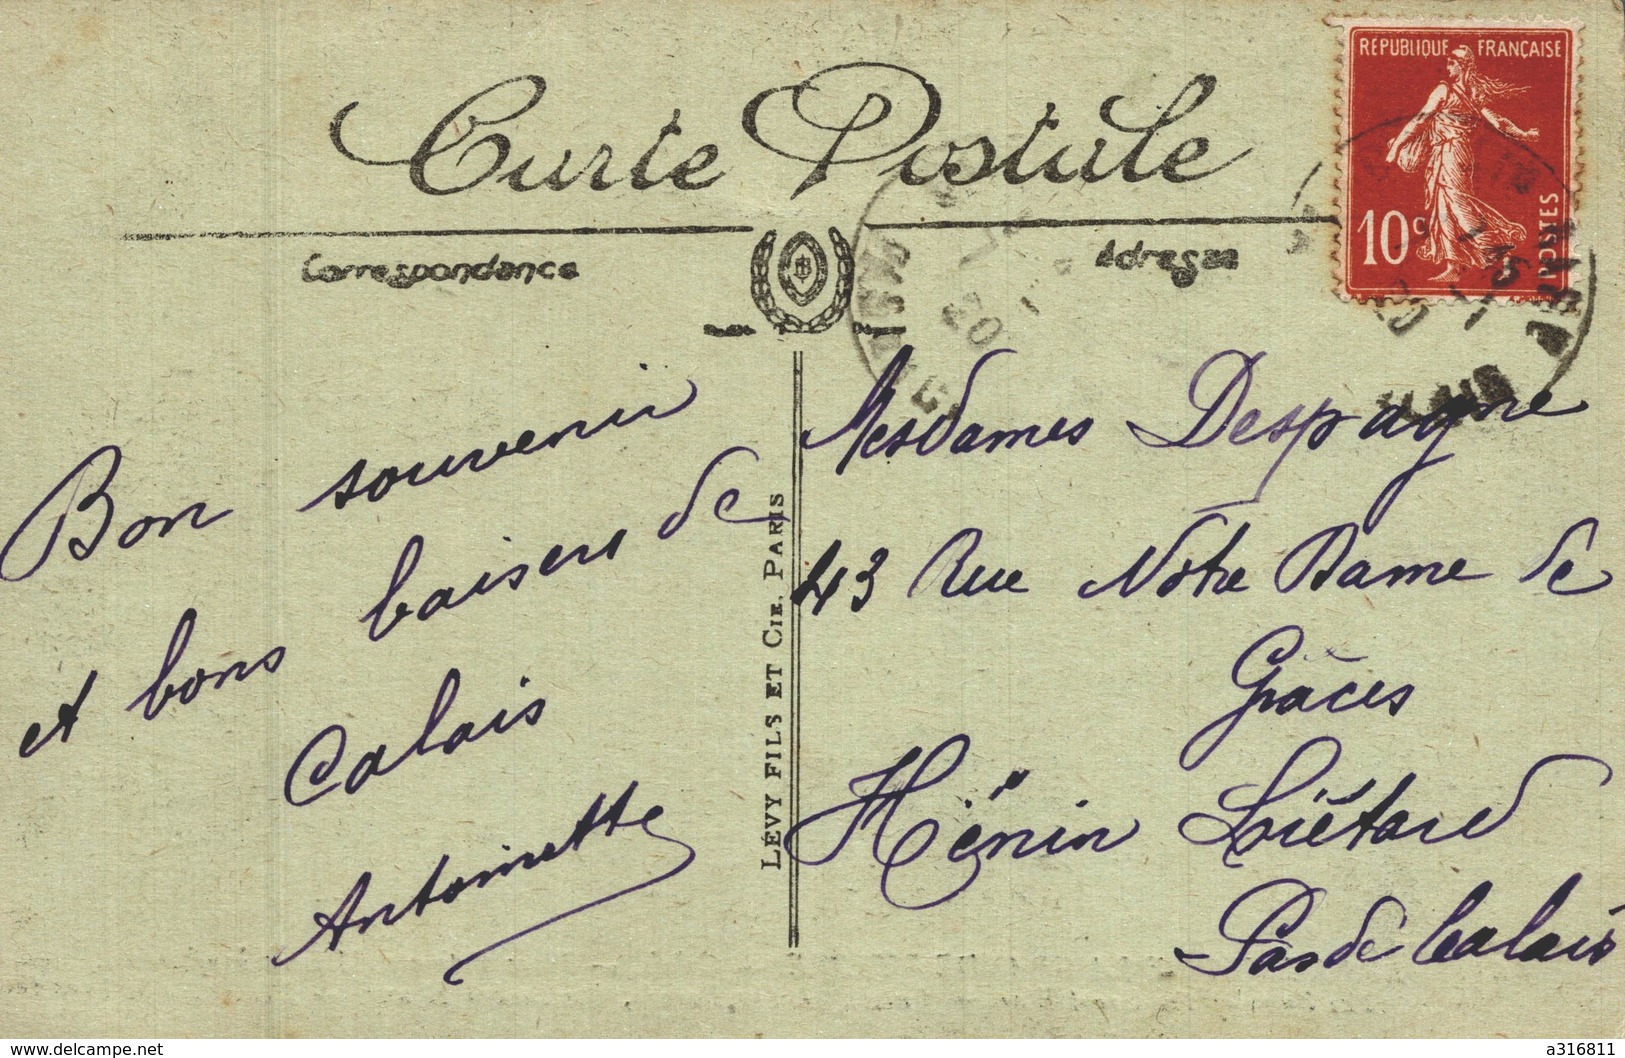 RÉPUBLIQUE FRANÇAISE
10c
POSTES
Carte Postale
Correspondance
Adresse
Bon souvenir
et bons baisers de
Calais
Antoinette
LÉVY FILS ET CIE. PARIS
Mesdames Despagne
43 Rue Notre Dame de
Grâces
Hénin Liétard
Pas de Calais
https://www.delcampe.net
a316811